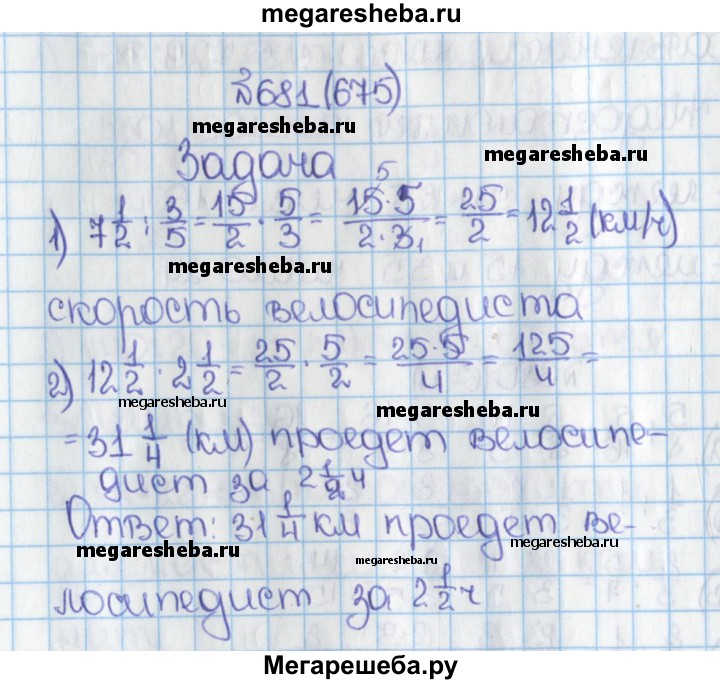 megaresheba.ru
№681 (675)
megaresheba.ru
Задача
megaresheba.ru
1) 7 1/2 : 3/5 = 15/2 · 5/3 = 15·5/2·3 = 25/2 = 12 1/2 (км/ч)
5
1
megaresheba.ru
скорость велосипедиста
2) 12 1/2 · 2 1/2 = 25/2 · 5/2 = 25·5/4 = 125/4 =
megaresheba.ru
megaresheba.ru
= 31 1/4 (км) проедет велосипе-
дист за 2 1/2 ч
Ответ: 31 1/4 км проедет ве-
megaresheba.ru
megaresheba.ru
megaresheba.ru
лосипедист за 2 1/2 ч
Мегарешеба.ру